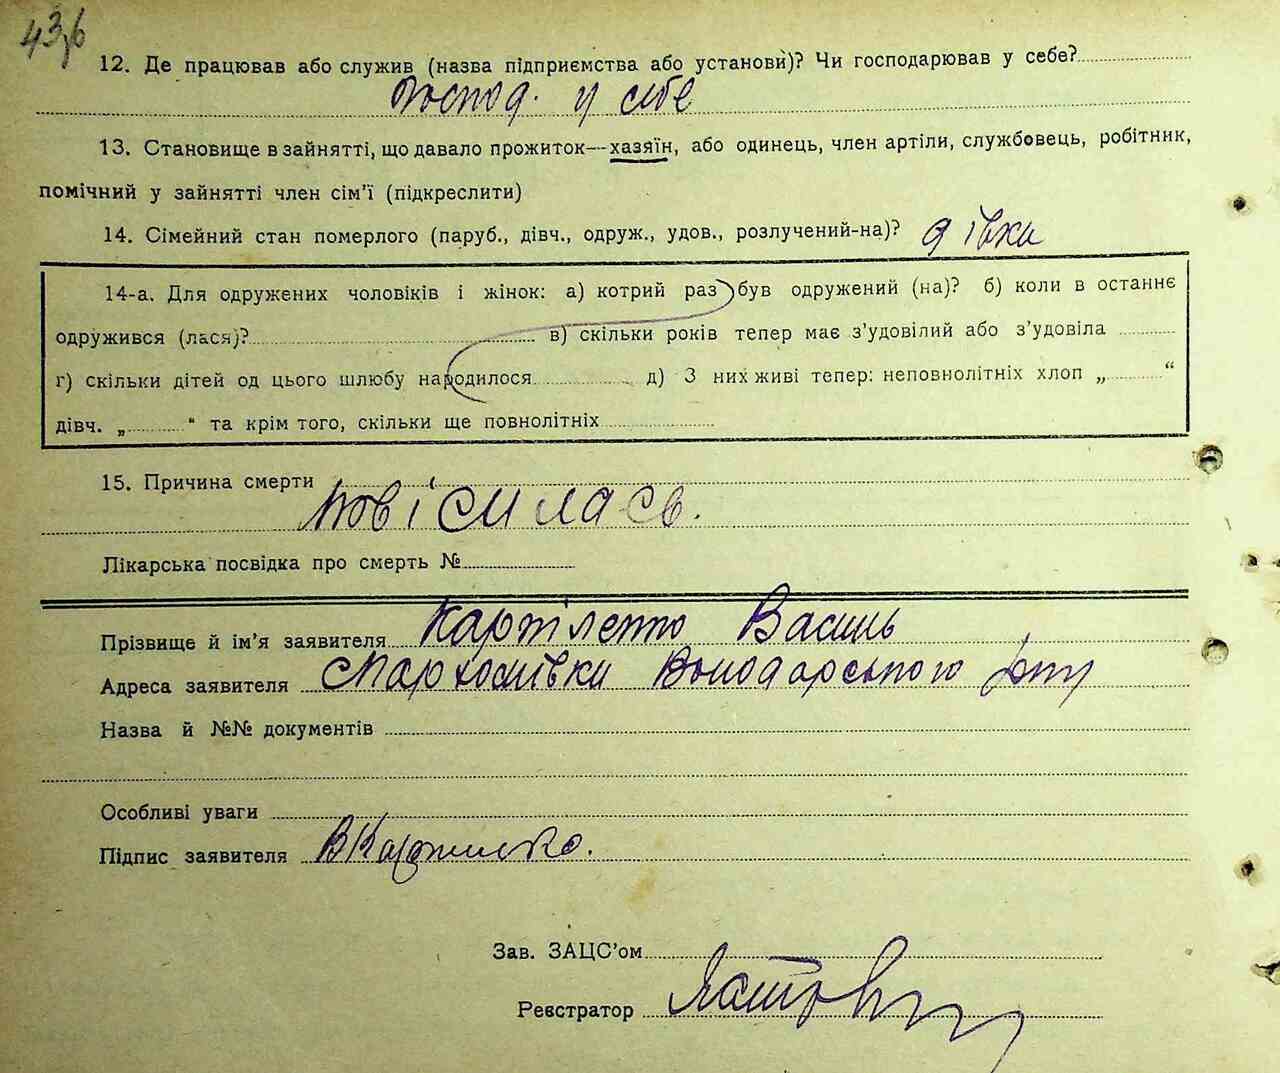 43
12. Де працював або служив (назва підприємства або установи)? Чи господарював у себе?
Господ. у себе
13. Становище в зайнятті, що давало прожиток—хазяїн, або одинець, член артіли, службовець, робітник,
помічний у зайнятті член сім'ї (підкреслити)
14. Сімейний стан померлого (паруб., дівч., одруж., удов., розлучений-на)? дівка
14-а. Для одружених чоловіків і жінок: а) котрий раз був одружений (на)? б) коли в останнє
одружився (лася)? в) скільки років тепер має з'удовілий або з'удовіла
г) скільки дітей од цього шлюбу народилося д) З них живі тепер: неповнолітніх хлоп „ “
дівч. „ “ та крім того, скільки ще повнолітніх
15. Причина смерти
повісилась.
Лікарська посвідка про смерть №
Прізвище й ім'я заявителя Василь
Адреса заявителя Володарського р-ну
Назва й №№ документів
Особливі уваги
Підпис заявителя
Зав. ЗАЦС'ом
Реєстратор